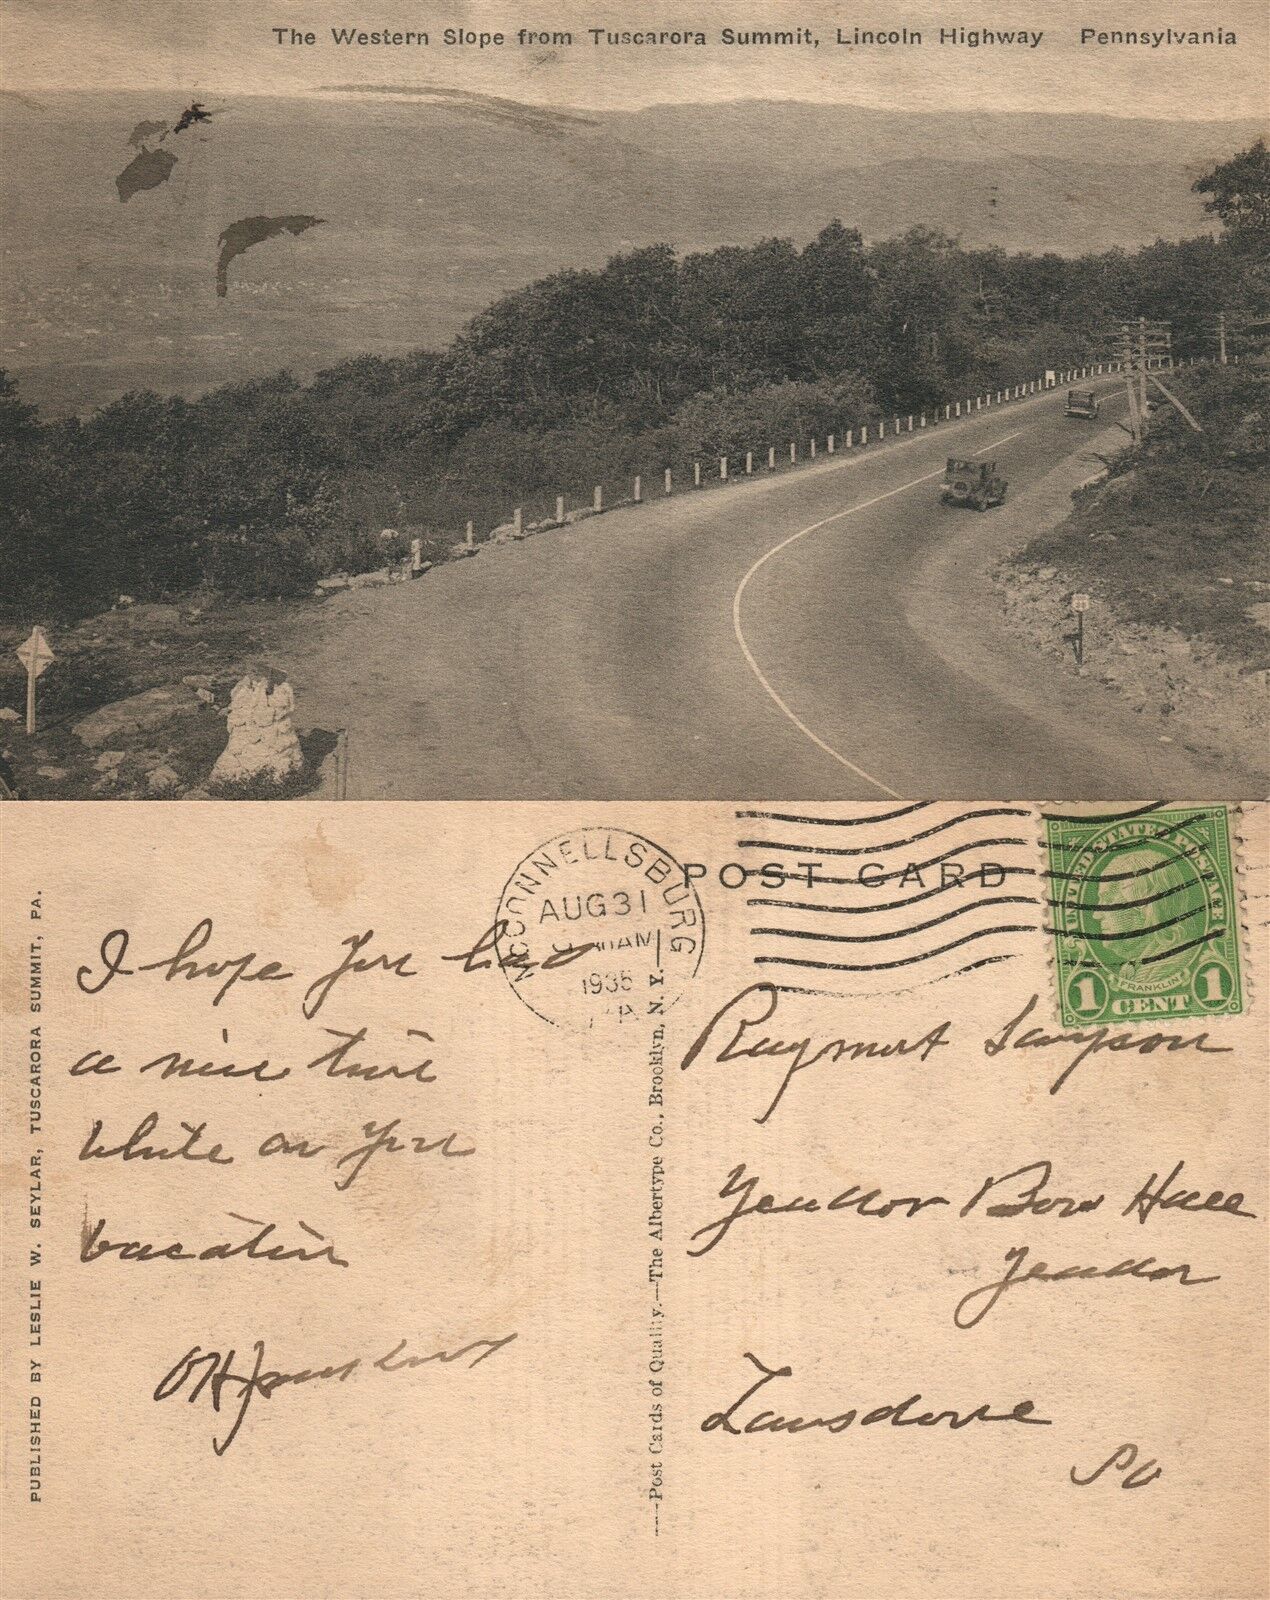 The Western Slope from Tuscarora Summit, Lincoln Highway Pennsylvania
PUBLISHED BY LESLIE W. SEYLAR, TUSCARORA SUMMIT, PA.
McCONNELLSBURG
AUG 31
AM
1935
PA
POST CARD
UNITED STATES POSTAGE
FRANKLIN
1 CENT 1
I hope you had
a nice time
while on your
vacation
—Post Cards of Quality.—The Albertype Co., Brooklyn, N. Y.—
Raymont Sampson
Yeadon Boro Hall
Yeadon
Lansdowne
Pa